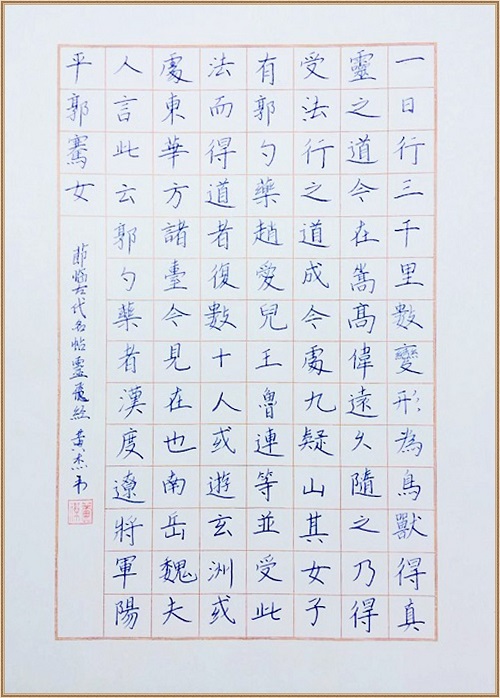 一日行三千里數變形為鳥獸得真
靈之道今在嵩高偉遠久隨之乃得
受法行之道成今處九疑山其女子
有郭勺藥趙愛兒王魯連等並受此
法而得道者復數十人或遊玄洲或
處東華方諸臺今見在也南岳魏夫
人言此云郭勺藥者漢度遼將軍陽
平郭騫女
節臨古代名帖靈飛經黃杰书